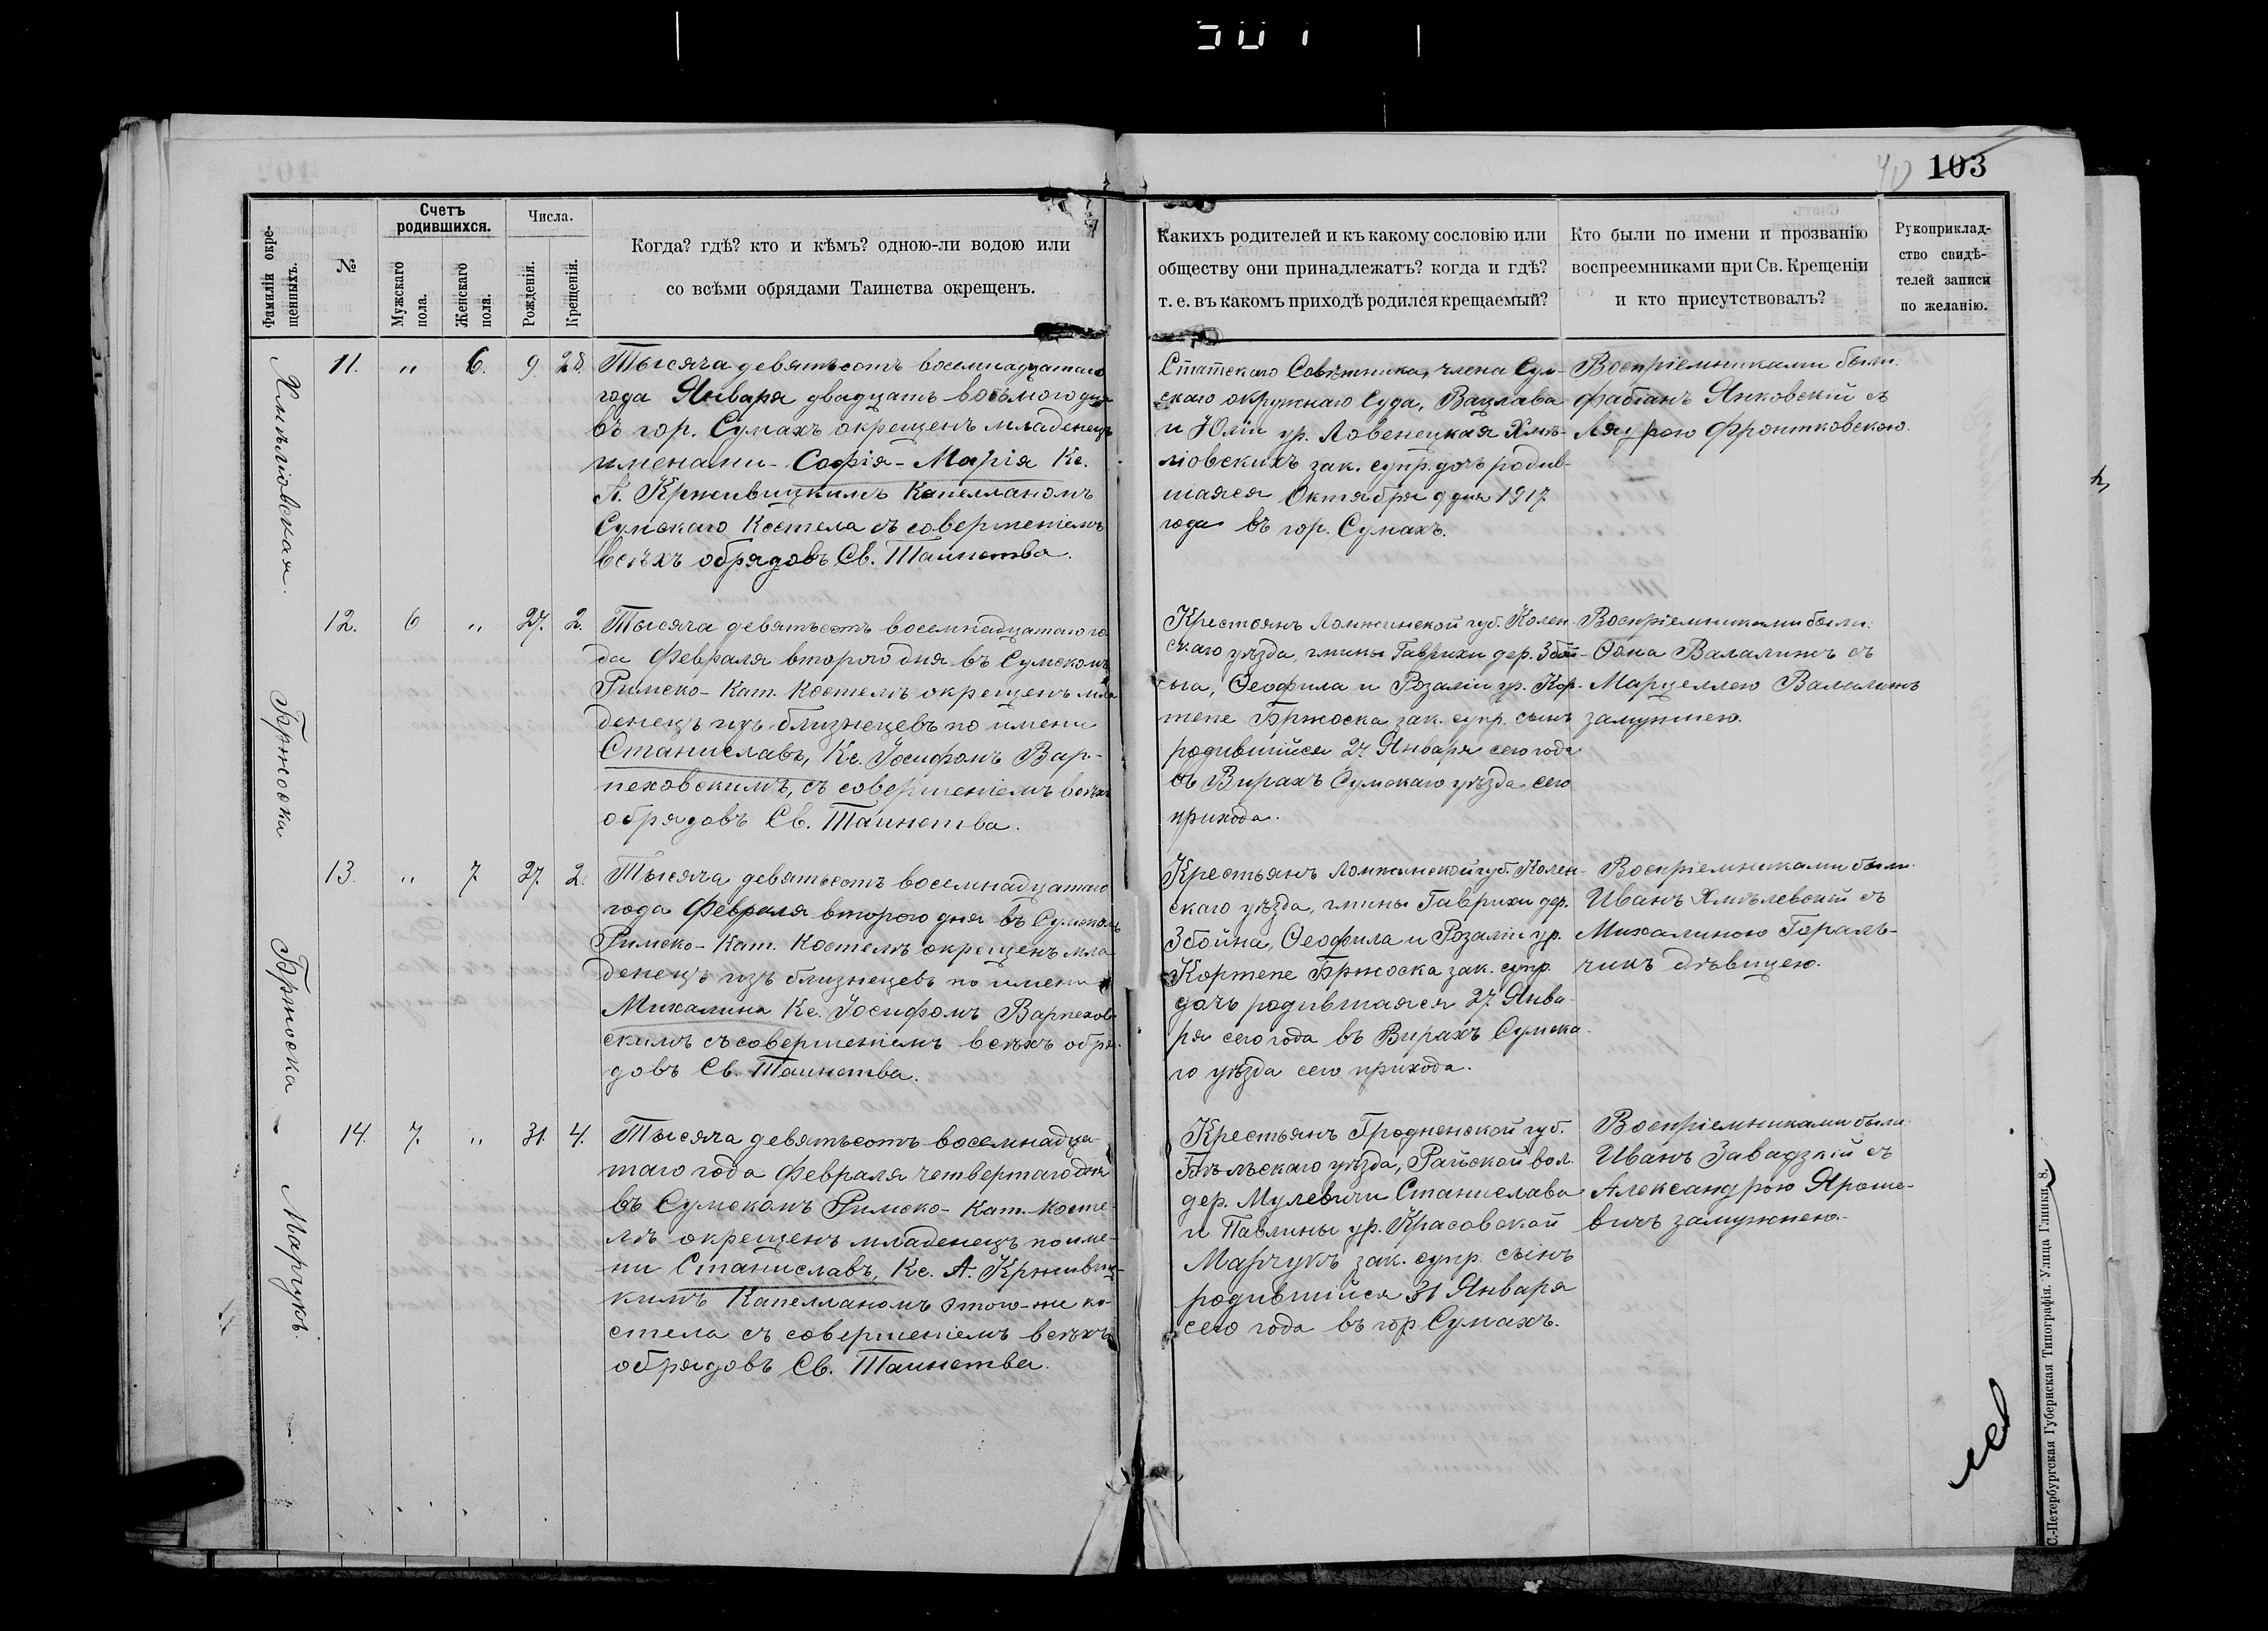 103
Фамиліи окре-
щенныхъ.
№
Счетъ
родившихся.
Мужскаго
пола.
Женскаго
пола.
Числа.
Рожденія.
Крещенія.
Когда? гдѣ? кто и кѣмъ? одною-ли водою или
со всѣми обрядами Таинства окрещенъ.
Какихъ родителей и къ какому сословію или
обществу они принадлежатъ? когда и гдѣ?
т. е. въ какомъ приходѣ родился крещаемый?
Кто были по имени и прозванію
воспреемниками при Св. Крещеніи
и кто присутствовалъ?
Рукоприклад-
ство свидѣ-
телей записи
по желанію.
Хмѣліовская.
11. " 6. 9. 28.
Тысяча девятьсотъ восемнадцатаго
года Января двадцать восьмого дня
въ гор. Сумахъ окрещенъ младенецъ
именами - Софія - Марія Кс.
А. Крживицкимъ Капелланомъ
Сумскаго Костела съ совершеніемъ
всѣхъ обрядовъ Св. Таинства.
Статскаго Совѣтника, члена Сум-
скаго окружнаго Суда, Вацлава
и Юліи ур. Ловенецкая Хмѣ-
ліовскихъ зак. супр. дочь родив-
шаяся Октября 9 дня 1917
года въ гор. Сумахъ.
Воспріемниками были:
Фабіанъ Янковскій съ
Фронтковскою.
Бржоска
12. 6 " 27. 2.
Тысяча девятьсотъ восемнадцатаго го
да Февраля второго дня въ Сумскомъ
Римско-Кат. Костелѣ окрещенъ мла
денецъ изъ близнецевъ по имени
Станиславъ, Кс. Іосифомъ Вар-
пеховскимъ, съ совершеніемъ всѣхъ
обрядовъ Св. Таинства.
Крестьянъ Ломжинской губ. Колен-
скаго уѣзда, гмины Гаврихи дер. Збой-
Ѳеофила и Розаліи ур. Кор-
тепе Бржоска зак. супр. сынъ
родившійся 27 Января сего года
въ Вирахъ Сумскаго уѣзда сего
прихода.
Воспріемниками были:
Ѳома Валалинъ съ
Марцеллею Валалинъ
замужнею.
Бржоска
13. " 7 27. 2.
Тысяча девятьсотъ восемнадцатаго
года Февраля второго дня въ Сумскомъ
Римско-Кат. Костелѣ окрещенъ мла
денецъ изъ близнецевъ по имени
Михалина Кс. Іосифомъ Варпехов
скимъ съ совершеніемъ всѣхъ обря-
довъ Св. Таинства.
Крестьянъ Ломжинской губ. Колен-
скаго уѣзда, гмины Гаврихи дер.
Збойна, Ѳеофила и Розаліи ур.
Кортепе Бржоска зак. супр.
дочь родившаяся 27 Янва-
ря сего года въ Вирахъ Сумска-
го уѣзда сего прихода.
Воспріемниками были
Иванъ Хмѣлевскій съ
Михалиною Гораль-
чикъ дѣвицею.
Марчукъ.
14. 7. " 31. 4.
Тысяча девятьсотъ восемнадца-
таго года Февраля четвертаго дня
въ Сумскомъ Римско-Кат. Косте-
лѣ окрещенъ младенецъ по име-
ни Станиславъ, Кс. А. Крживиц-
кимъ Капелланомъ этого-же ко-
стела съ совершеніемъ всѣхъ
обрядовъ Св. Таинства.
Крестьянъ Гродненской губ.
Бѣльскаго уѣзда, Райской вол.
дер. Мулевичи Станислава
и Павлины ур. Красовской
Марчукъ зак. супр. сынъ
родившійся 31 Января
сего года въ гор. Сумахъ.
Воспріемниками были:
Иванъ Завадзкій съ
Александрою Яроше-
вичъ замужнею.
С.-Петербургская Губернская Типографія. Улица Глинки, 8.